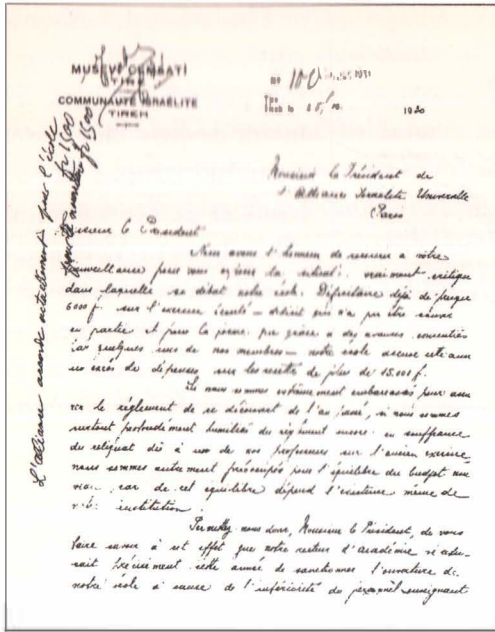 MUSEVİ CEMAATİ
TIRE
COMMUNAUTÉ ISRAÉLITE
TIREH
No
1930
Monsieur le Président de
l'Alliance Israélite Universelle
Paris
Monsieur le Président
Nous avons l'honneur de recourir à votre
bienveillance pour vous exposer la situati. vraiment critique
dans laquelle se débat notre école. Déficitaire déjà de presque
6000 f. sur l'exercice écoulé — déficit qui n'a pu être couvert
en partie et pour la forme, que grâce a des avances consenties
par quelques uns de nos membres — notre école accuse cette année
un excès de dépenses, sur les recettes de plus de 15.000 f.
Si nous sommes extrêmement embarrassés pour
le règlement de ce découvert de l'an passé, si nous sommes
surtout profondément humiliés du règlement encore en souffrance
du reliquat dû à un de nos professeurs sur l'ancien exercice,
nous sommes autrement préoccupés pour l'équilibre du budget
car de cet équilibre dépend l'existence même de
institution.
Permettez nous donc, Monsieur le Président, de vous
faire savoir à cet effet que notre recteur d'académie
précisément cette année de sanctionner l'ouverture de
notre école à cause de l'infériorité du personnel enseignant
L'alliance accorde actuellement pour l'école
fr 1500